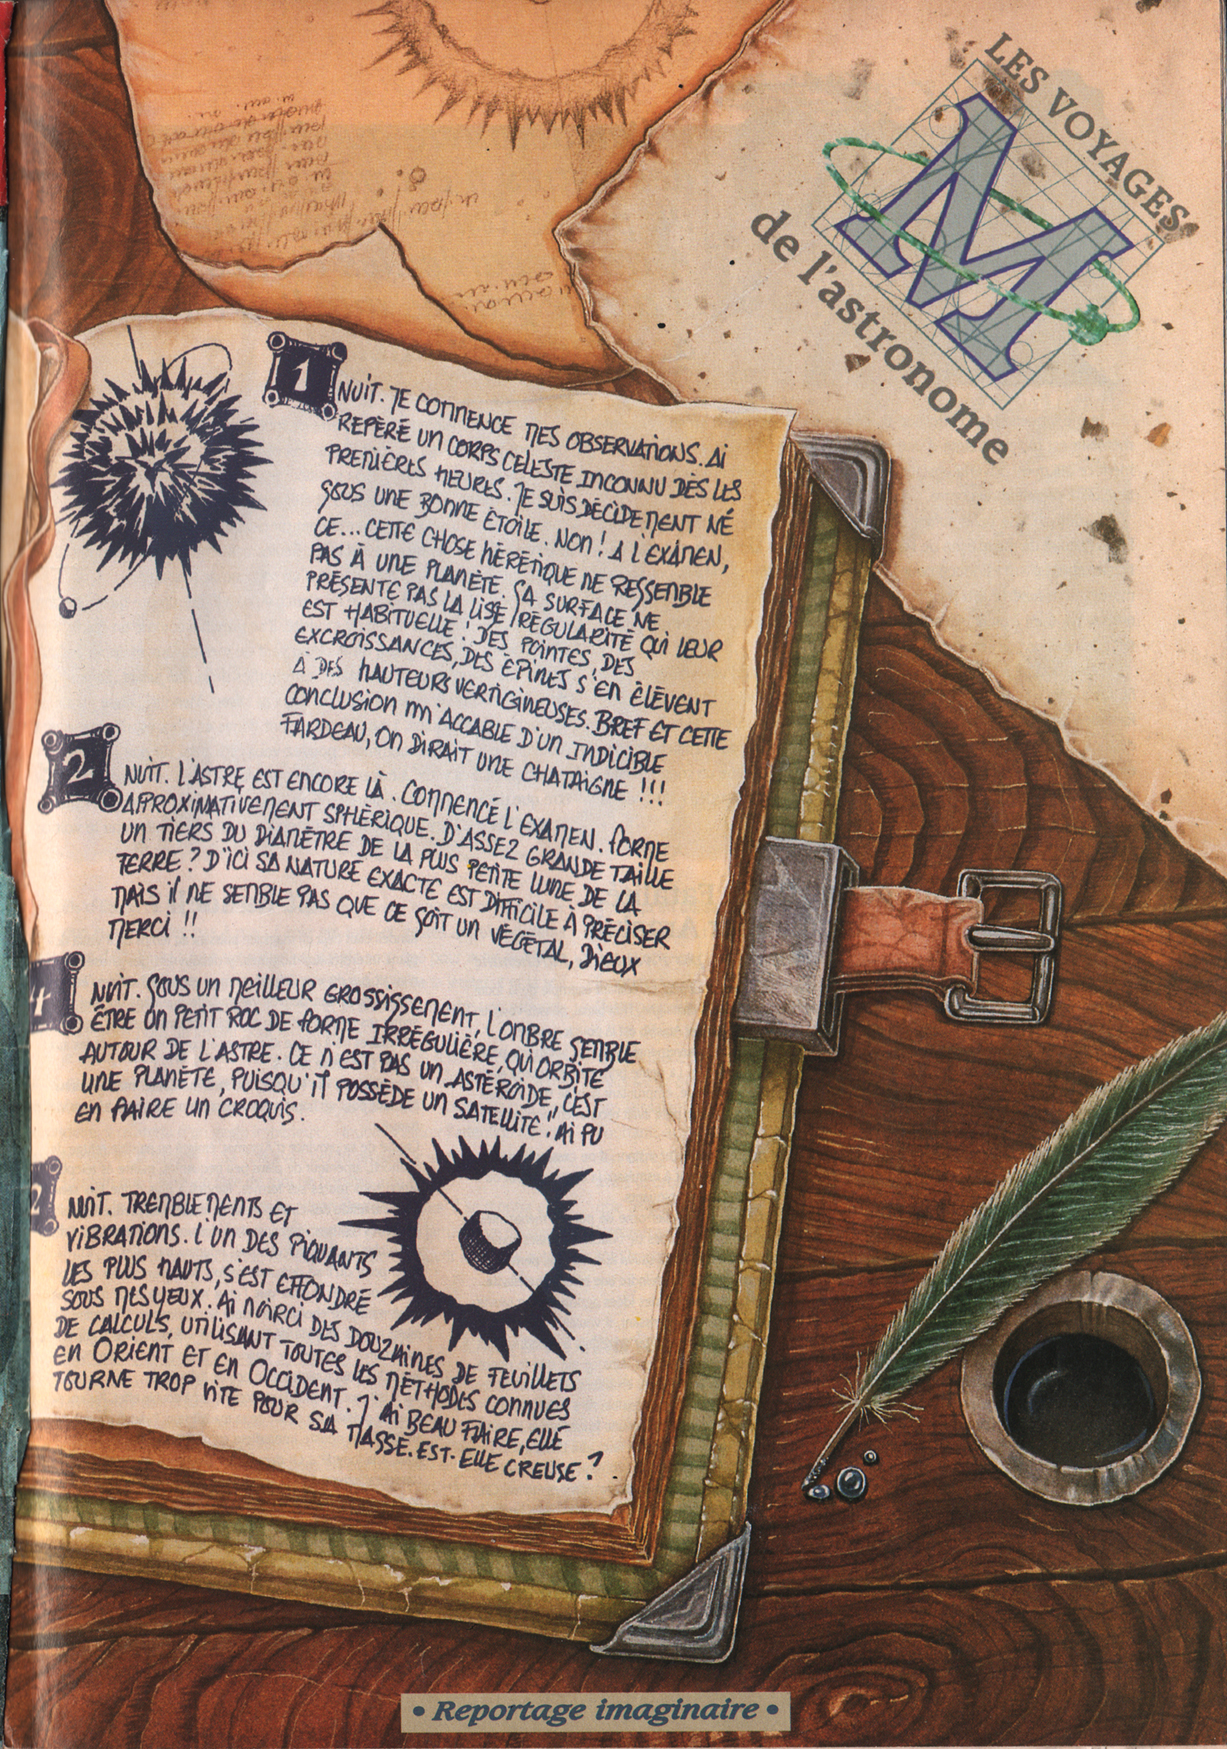 LES VOYAGES
M
de l'astronome
1
NUIT. JE COMMENCE MES OBSERVATIONS. AI
REPÈRÉ UN CORPS CELESTE INCONNU DÈS LES
PREMIÈRES HEURES. JE SUIS DÉCIDEMENT NÉ
SOUS UNE BONNE ÉTOILE. NON ! A L'EXAMEN,
CE... CETTE CHOSE HÈRÈTIQUE NE RESSEMBLE
PAS À UNE PLANÈTE. SA SURFACE NE
PRÉSENTE PAS LA LISSE RÉGULARITÉ QUI LEUR
EST HABITUELLE ! DES POINTES, DES
EXCROISSANCES, DES ÉPINES S'EN ÉLÈVENT
À DES HAUTEURS VERTIGINEUSES. BREF ET CETTE
CONCLUSION M'ACCABLE D'UN INDICIBLE
FARDEAU, ON DIRAIT UNE CHATAIGNE !!!
2
NUIT. L'ASTRE EST ENCORE LÀ. COMMENCÉ L'EXAMEN. FORME
APPROXIMATIVEMENT SPHÈRIQUE. D'ASSEZ GRANDE TAILLE
UN TIERS DU DIAMÈTRE DE LA PLUS PETITE LUNE DE LA
TERRE ? D'ICI SA NATURE EXACTE EST DIFFICILE À PRÉCISER
MAIS IL NE SEMBLE PAS QUE CE SOIT UN VÉGÉTAL, DIEUX
MERCI !!
4
NUIT. SOUS UN MEILLEUR GROSSISSEMENT, L'OMBRE SEMBLE
ÊTRE UN PETIT ROC DE FORME IRRÉGULIÈRE, QUI ORBITE
AUTOUR DE L'ASTRE. CE N'EST PAS UN ASTÉROÏDE, C'EST
UNE PLANÈTE, PUISQU'IL POSSÈDE UN SATELLITE ! AI PU
EN FAIRE UN CROQUIS.
2
NUIT. TREMBLEMENTS ET
VIBRATIONS. L'UN DES PIQUANTS
LES PLUS HAUTS, S'EST EFFONDRÉ
SOUS MES YEUX. AI NOIRCI DES DOUZAINES DE FEUILLETS
DE CALCULS, UTILISANT TOUTES LES MÉTHODES CONNUES
EN ORIENT ET EN OCCIDENT. J'AI BEAU FAIRE, ELLE
TOURNE TROP VITE POUR SA MASSE. EST-ELLE CREUSE ?
• Reportage imaginaire •